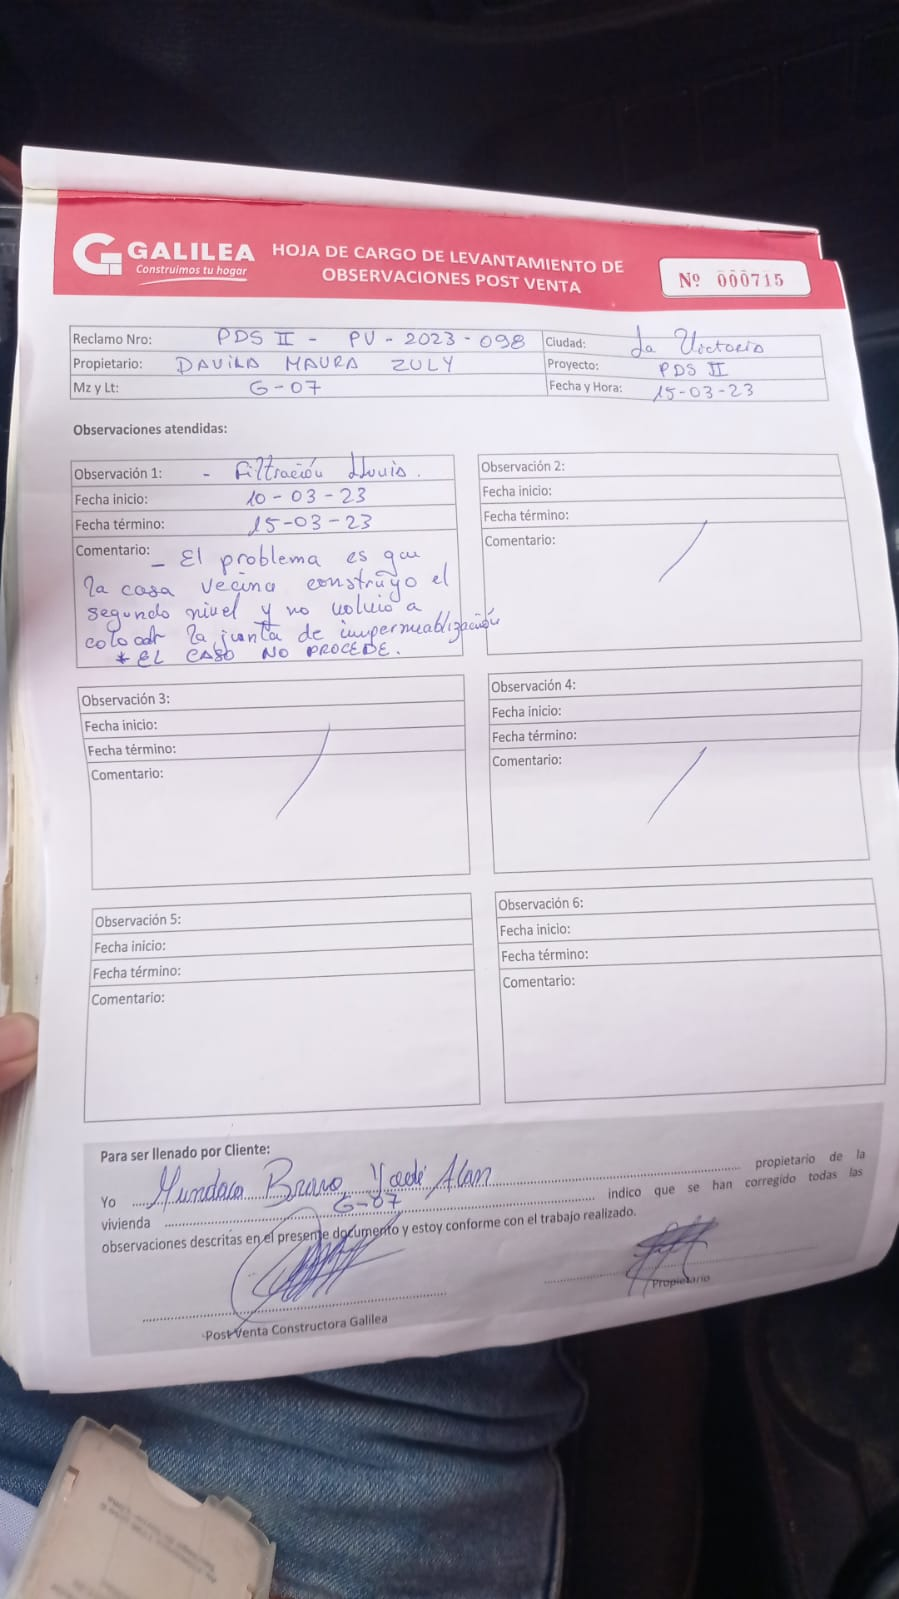 GALILEA
Construimos tu hogar
HOJA DE CARGO DE LEVANTAMIENTO DE
OBSERVACIONES POST VENTA
Nº 000715
Reclamo Nro: PDS II - PV - 2023 - 098
Ciudad: La Victoria
Propietario: DAVILA MAURA ZULY
Proyecto: PDS II
Mz y Lt: G - 07
Fecha y Hora: 15-03-23
Observaciones atendidas:
Observación 1: - Filtración Lluvia.
Fecha inicio: 10-03-23
Fecha término: 15-03-23
Comentario: - El problema es que
la casa vecina construyo el
segundo nivel y no volvio a
colocar la junta de impermeablización
* EL CASO NO PROCEDE.
Observación 2:
Fecha inicio:
Fecha término:
Comentario:
Observación 3:
Fecha inicio:
Fecha término:
Comentario:
Observación 4:
Fecha inicio:
Fecha término:
Comentario:
Observación 5:
Fecha inicio:
Fecha término:
Comentario:
Observación 6:
Fecha inicio:
Fecha término:
Comentario:
Para ser llenado por Cliente:
Yo Mundaca Bravo Alan propietario de la
vivienda G-07 indico que se han corregido todas las
observaciones descritas en el presente documento y estoy conforme con el trabajo realizado.
Post Venta Constructora Galilea
Propietario